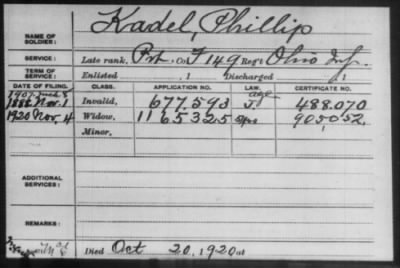 NAME OF SOLDIER: Kadel, Phillip
SERVICE: Late rank, Prt Co. F 149 Reg't Ohio Inf.
TERM OF SERVICE: Enlisted , 1 Discharged , 1
DATE OF FILING. CLASS. APPLICATION NO. LAW. CERTIFICATE NO.
1907 age
1888 Nov. 1 Invalid, 677.593 J. 488.070
1920 Nov. 4 Widow, 1165325 905052.
Minor,
ADDITIONAL SERVICES:
REMARKS:
Died Oct 20, 1920 at